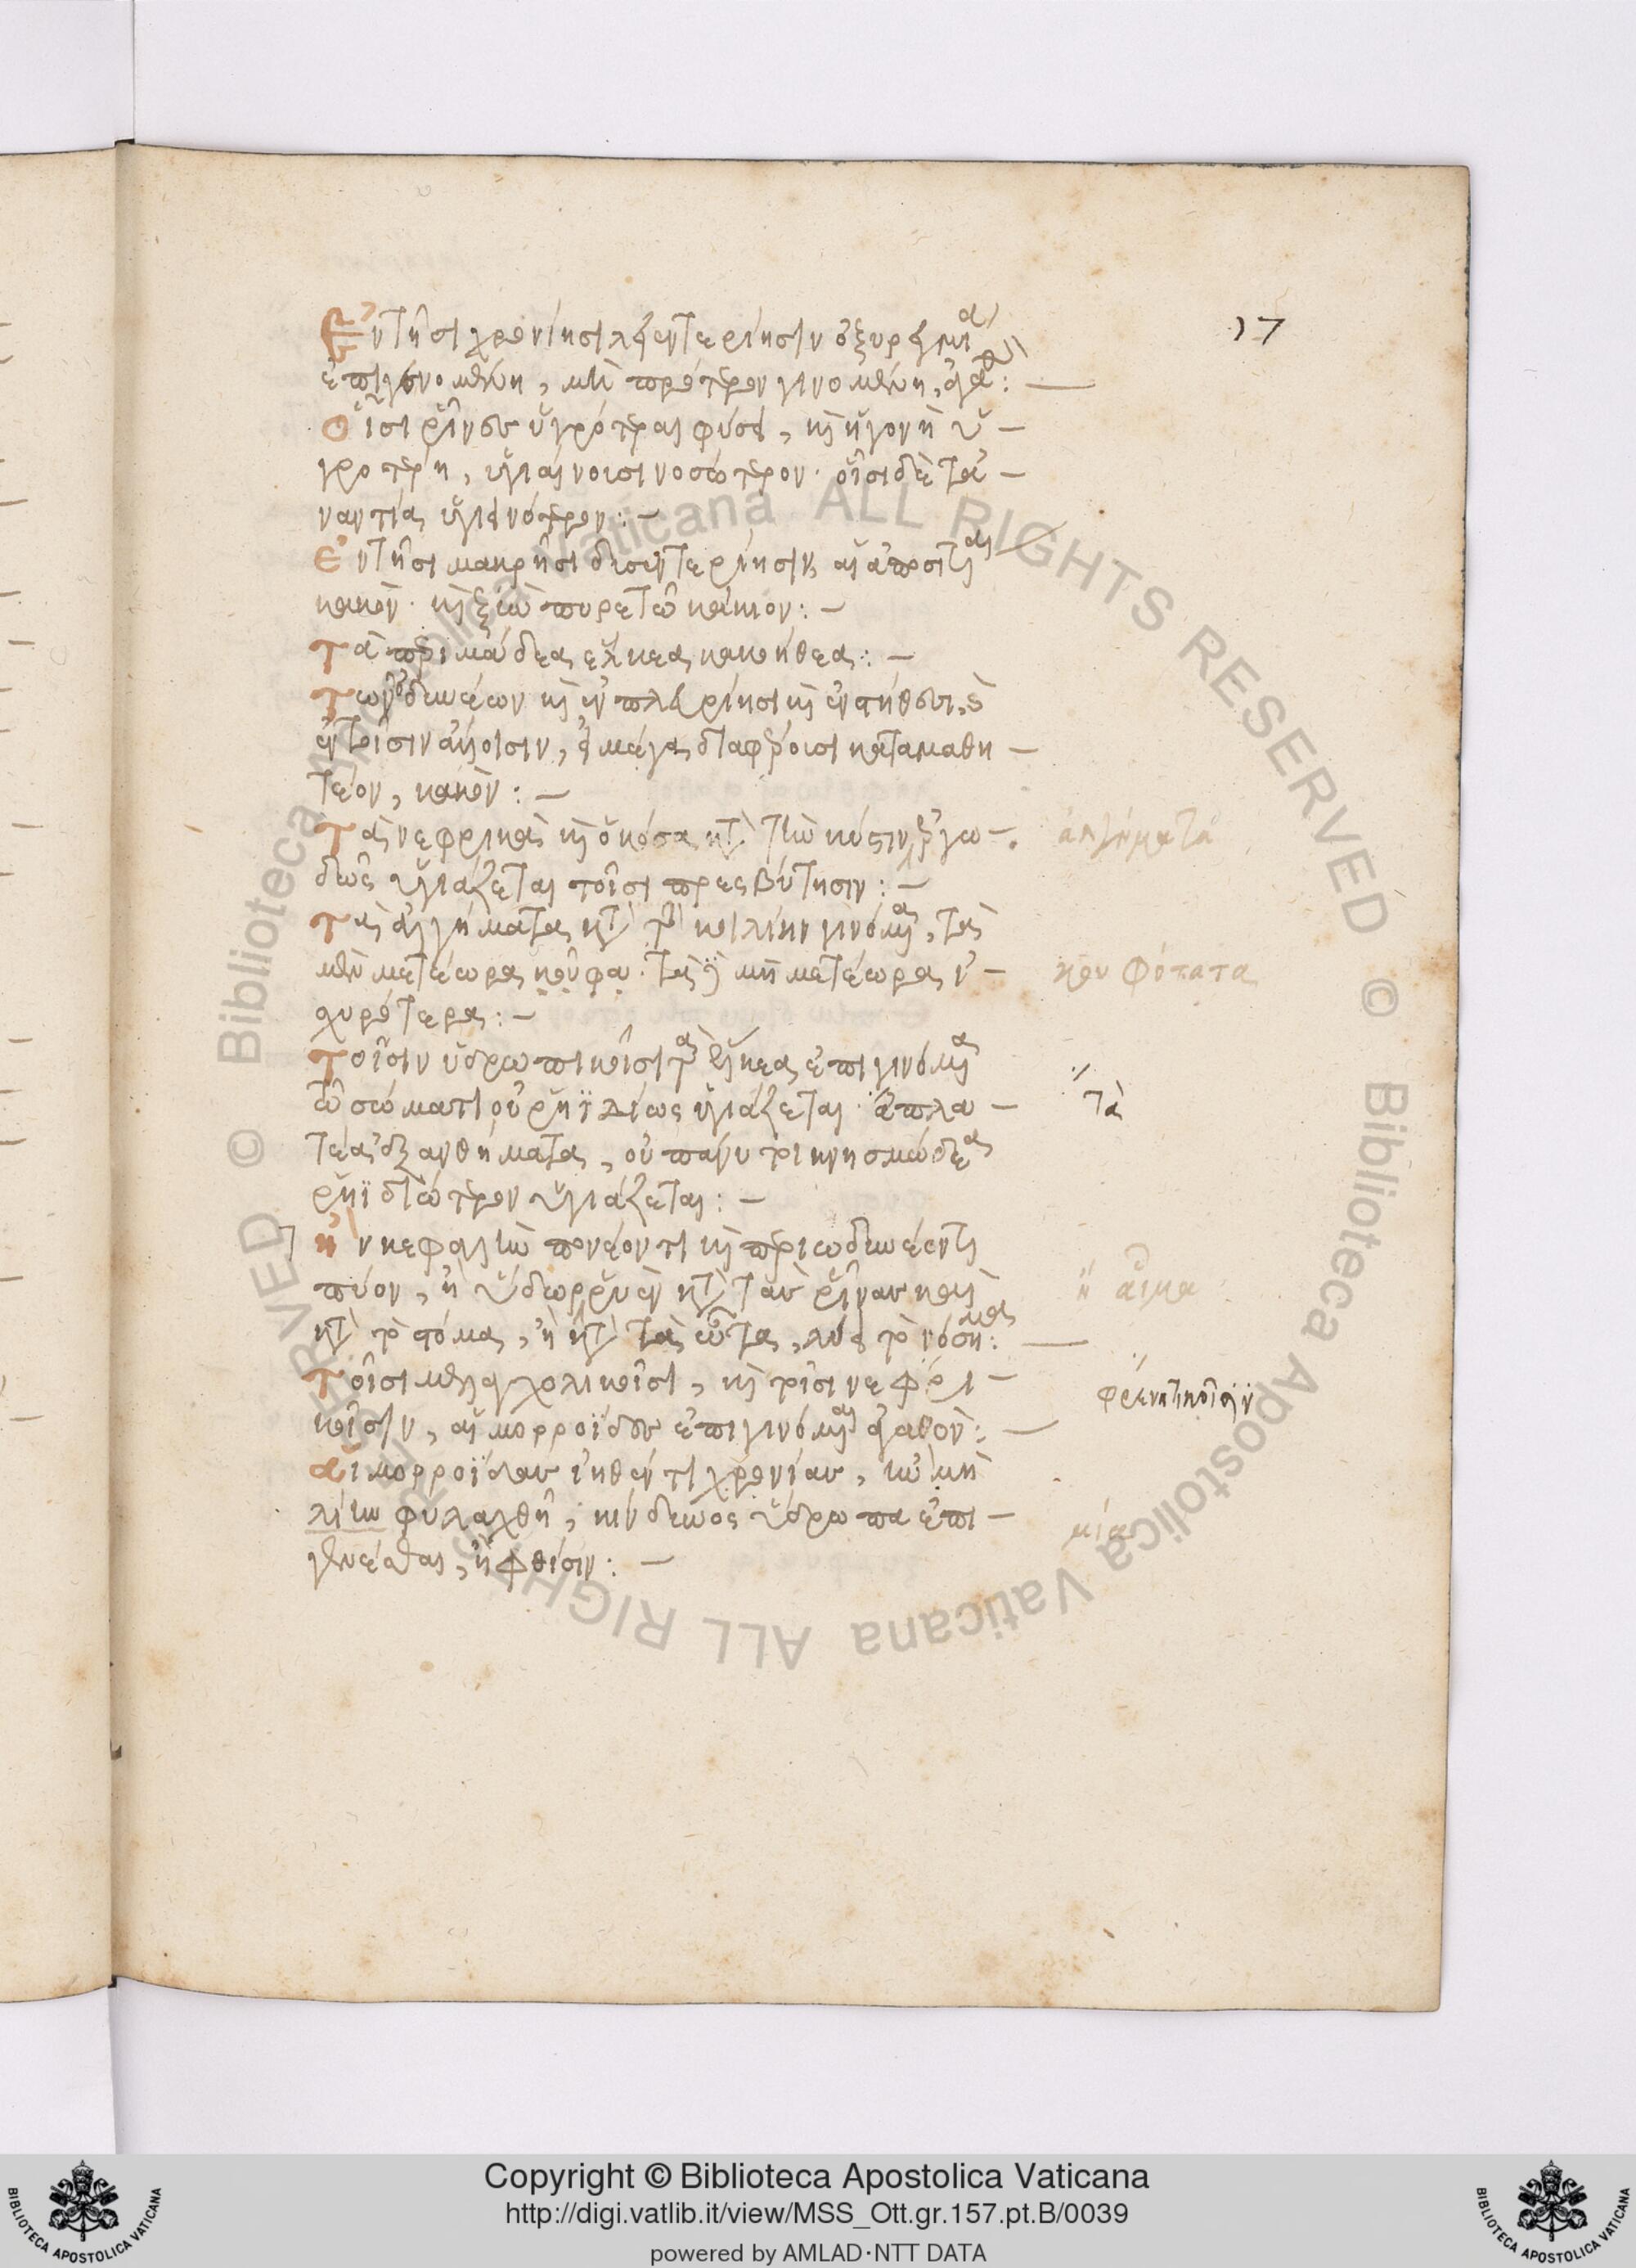 Ἐν τῆσι χρονίησι λειεντερίησιν ὀξυρεγμία
ἐπιγενομένη, μὴ πρότερον γινομένη, ἀγαθόν: —
Οἷσι ῥῖνες ὑγρότεραι φύσει, καὶ ἡ γονὴ ὑ –
γροτέρη, ὑγιαίνουσι νοσωτέρον· οἷσι δὲ τἀ –
ναντία, ὑγιεινότερον: —
Ἐν τῆσι μακρῆσι δυσεντερίησιν, αἱ ἀποσιτίαι
κακόν· καὶ ξὺν πυρετῶ κάκιον: —
Τὰ περιμάδεα ἕλκεα κακοήθεα: —
Τῶν ὀδυνέων καὶ ἐν πλευρίησι καὶ ἐν στήθεσι, καὶ
ἐν τοῖσιν ἄλλοισιν, εἰ μέγα διαφέροισι καταμαθη –
τέον, κακόν: —
Τὰ νεφριτικὰ καὶ ὁκόσα κατὰ τὴν κύστιν ἐργω –
δῶς ὑγιάζεται τοῖσι πρεσβύτησιν: —
ἀλγήματα
Τὰ ἀλγήματα κατὰ τὴν κοιλίην γινόμενα, τὰ
μὲν μετέωρα κοῦφα· τὰ δὲ μὴ μετέωρα ἰ –
κουφότατα
σχυρότερα: —
Τοῖσιν ὑδρωπικοῖσι τὰ ἕλκεα ἐπιγινόμενα
ἐν σώματι οὐ ῥηϊδίως ὑγιάζεται· ἃ πλα –
τὰ
τέα ἐξανθήματα, οὐ πάνυ τι κνησμώδεα
ῥηϊδιώτερον ὑγιάζεται: —
Ἢν κεφαλὴν πονέοντι καὶ περιωδυνέοντι
πύον, ἢ ὕδωρ ῥυὲν κατὰ τὰς ῥῖνας καὶ
ἢ αἷμα
κατὰ τὸ στόμα, ἢ κατὰ τὰ ὦτα, λύει τὸ νόσημα: —
Τοῖσι μελαγχολικοῖσι, καὶ τοῖσι νεφρι –
φρενητικοῖσιν
κοῖσιν, αἱμορροΐδες ἐπιγινόμεναι ἀγαθόν: —
Αἱμορροΐδας ἰηθέντι χρονίας, ἢν μὴ
λίην φυλαχθῆ, κίνδυνος ὕδρωπα ἐπι –
μία
γενέσθαι, ἢ φθίσιν: —
17
Copyright © Biblioteca Apostolica Vaticana
http://digi.vatlib.it/view/MSS_Ott.gr.157.pt.B/0039
powered by AMLAD·NTT DATA
BIBLIOTECA APOSTOLICA VATICANA
BIBLIOTECA APOSTOLICA VATICANA
© Biblioteca Apostolica Vaticana ALL RIGHTS RESERVED © Biblioteca Apostolica Vaticana ALL RIGHTS RESERVED